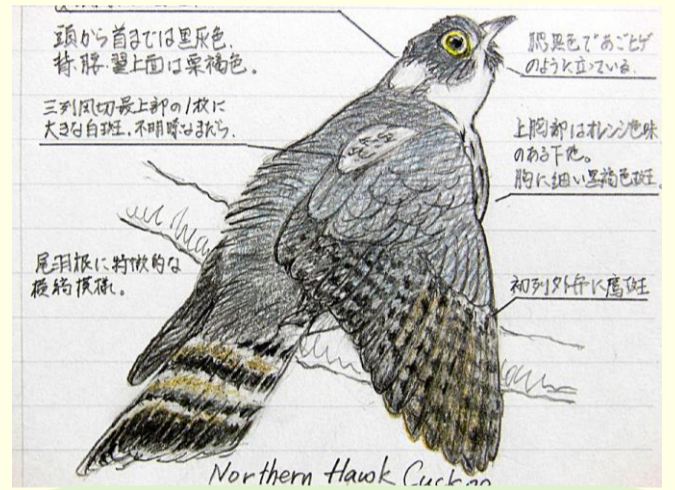 頭から首までは黒灰色.
背・腰・翼上面は栗褐色。
三列風切最上部の1枚に
大きな白斑.不明瞭なまだら.
尾羽根に特徴的な
横縞模様。
黒色であごヒゲ
のように立っている.
上胸部はオレンジ色味
のある下地。
胸に細い黒褐色斑.
初列外弁に鷹斑
Northern Hawk Cuckoo